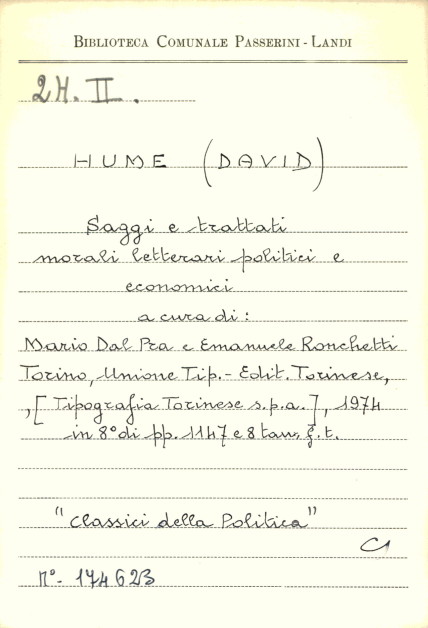 BIBLIOTECA COMUNALE PASSERINI - LANDI
2H. II.
HUME (DAVID)
Saggi e trattati
morali letterari politici e
economici
a cura di :
Mario Dal Pra e Emanuele Ronchetti
Torino, Unione Tip. - Edit. Torinese,
, [ Tipografia Torinese s.p.a. ], 1974
in 8° di pp. 1147 e 8 tav. f. t.
"Classici della Politica"
n° - 174623